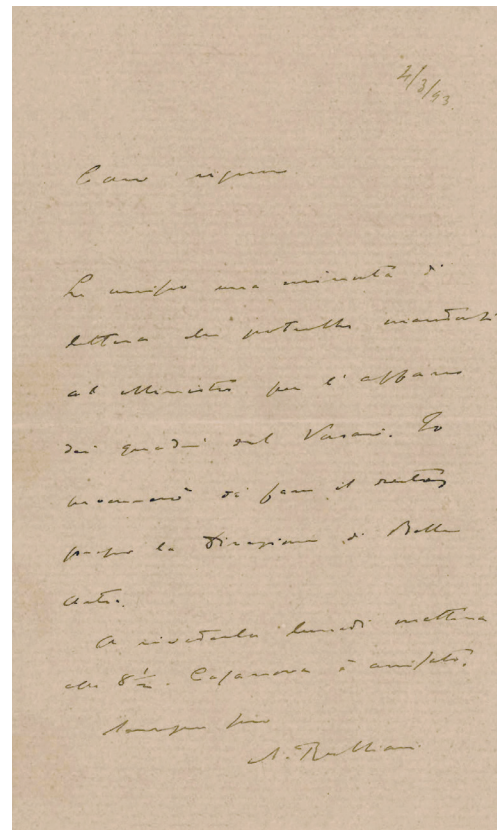 4/3/93.
Caro signore
Le unisco una minuta di
lettera che potrebbe mandarsi
al Ministro per l'affare
dei quadri del Vasari. Io
procurerò di fare il resto
presso la Direzione di Belle
Arti.
A rivederla lunedì mattina
alle 8 1/2. Casanova è avvisato.
Sempre suo
A.